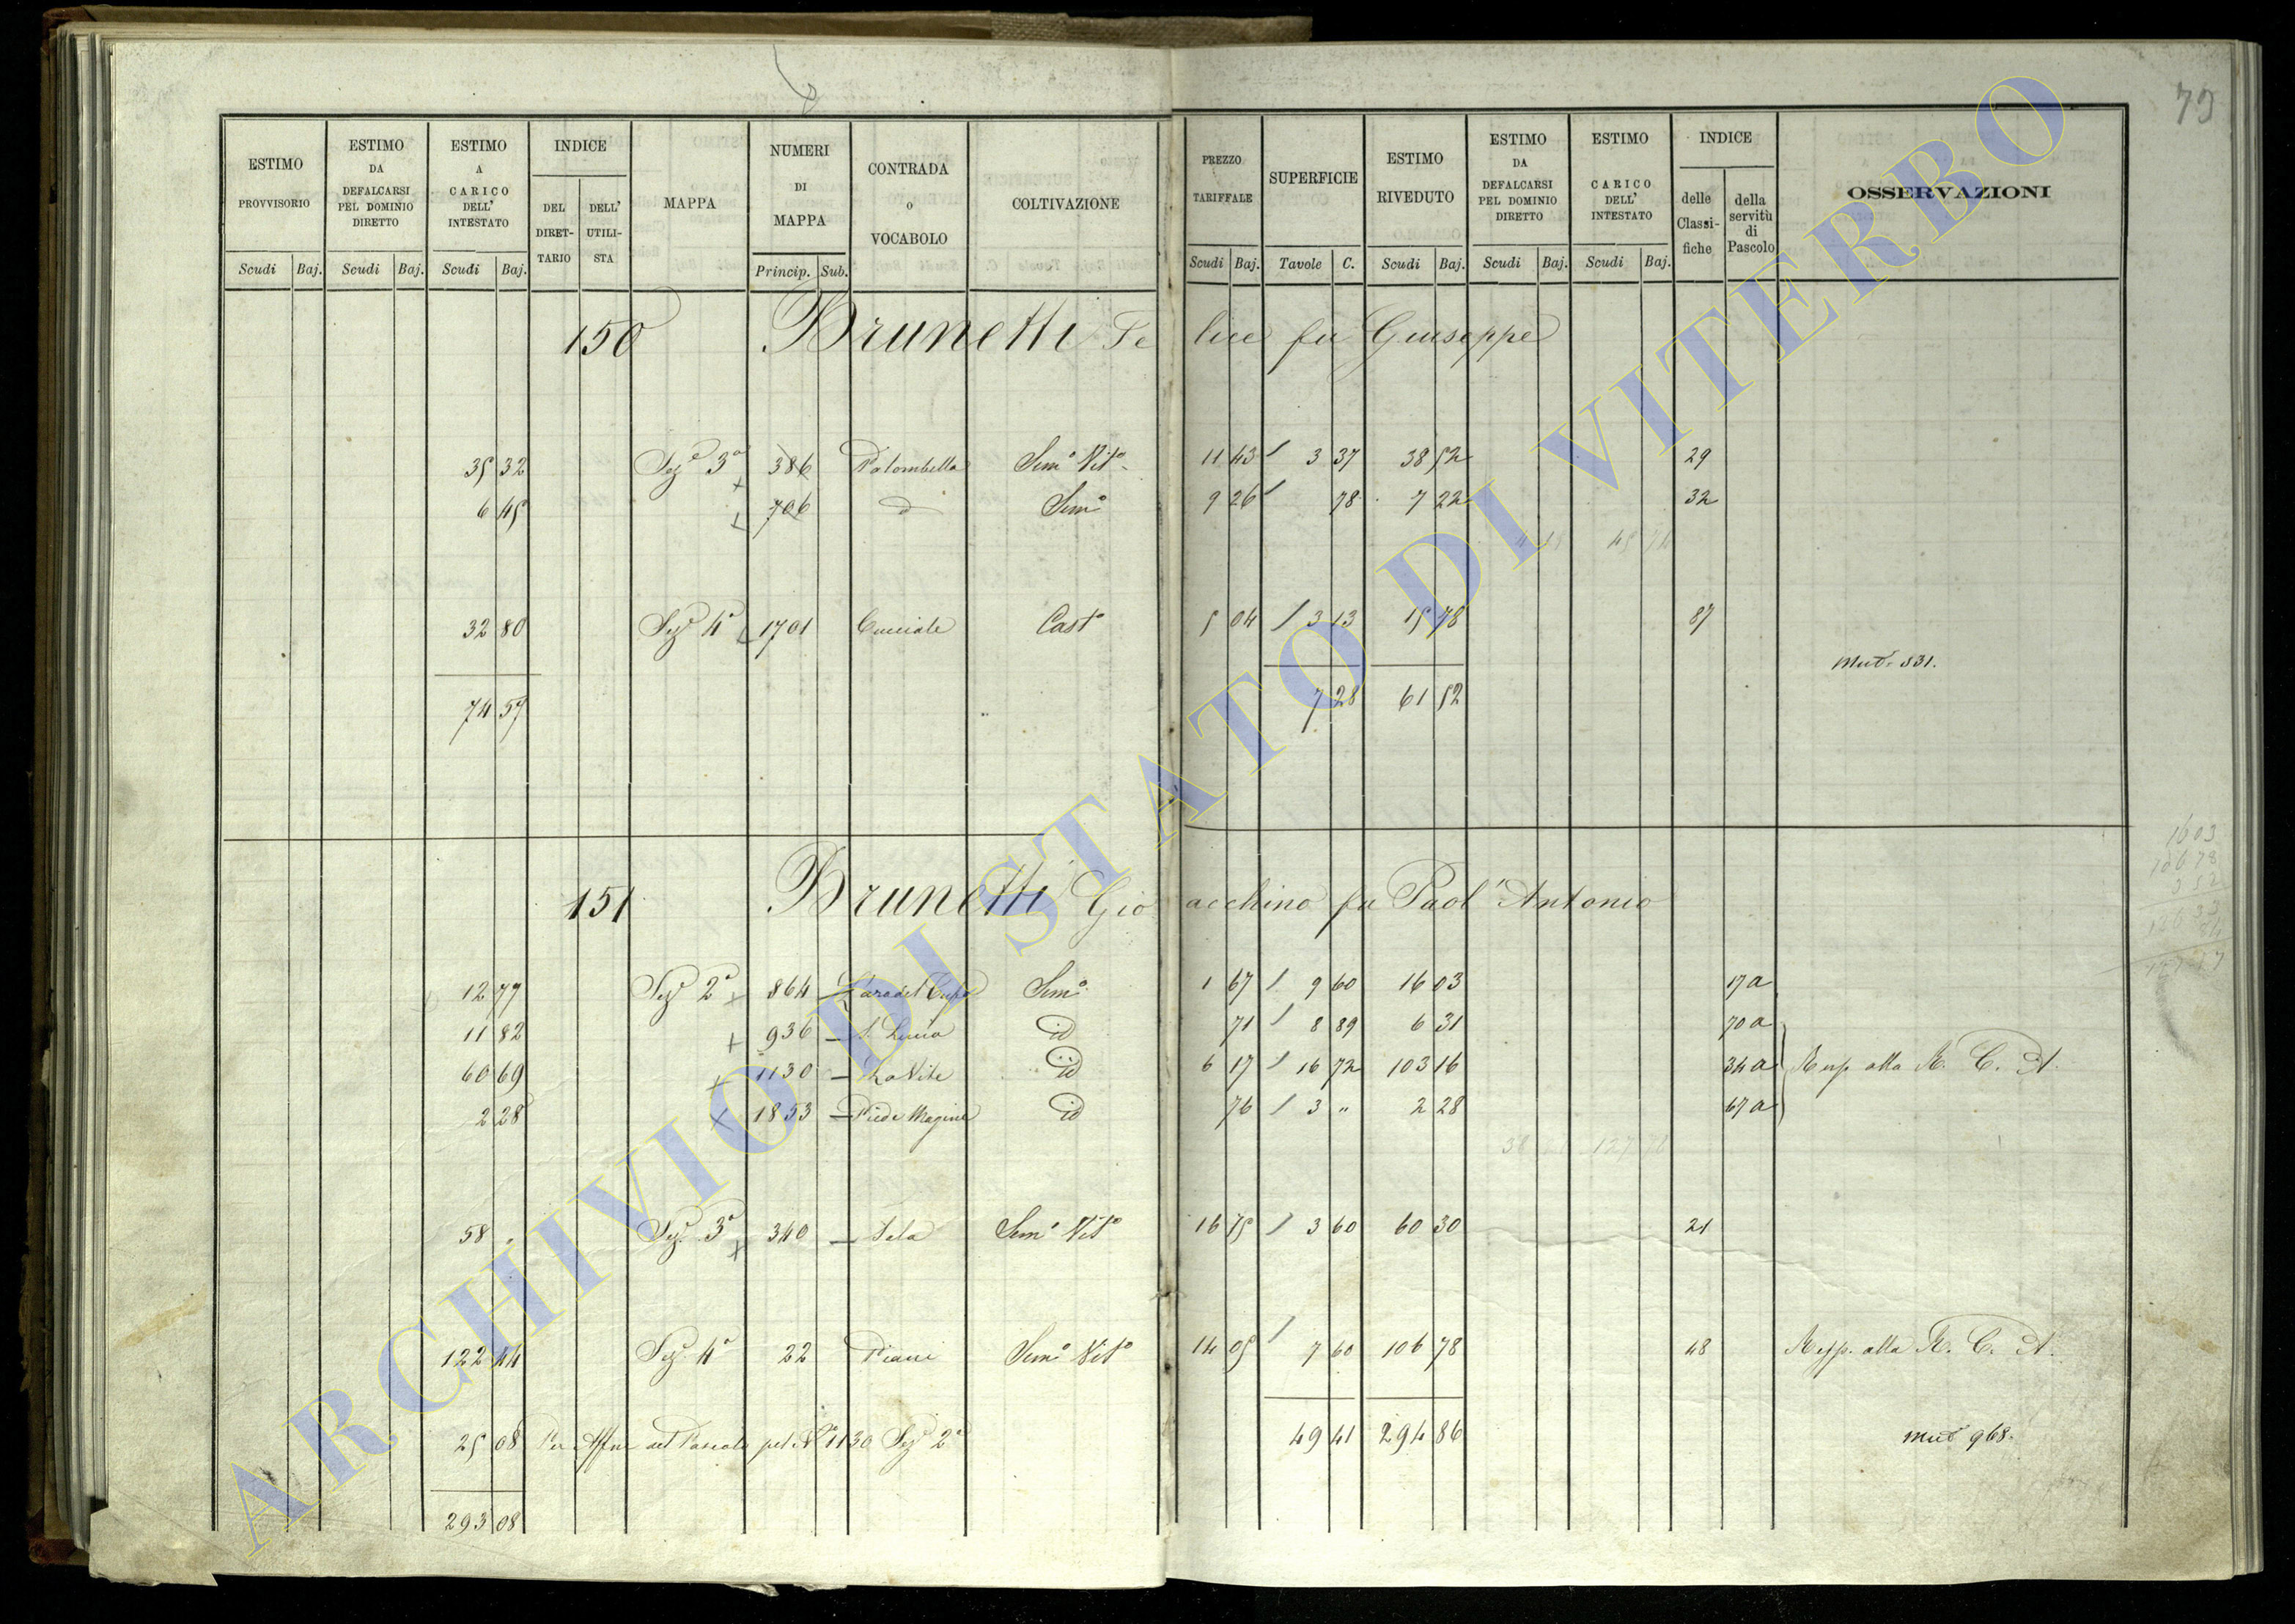 79
ESTIMO PROVVISORIO Scudi Baj.
ESTIMO DA DEFALCARSI PEL DOMINIO DIRETTO Scudi Baj.
ESTIMO A CARICO DELL' INTESTATO Scudi Baj.
INDICE DEL DIRET- TARIO DELL' UTILI- STA
MAPPA
NUMERI DI MAPPA Princip. Sub.
CONTRADA o VOCABOLO
COLTIVAZIONE
PREZZO TARIFFALE Scudi Baj.
SUPERFICIE Tavole C.
ESTIMO RIVEDUTO Scudi Baj.
ESTIMO DA DEFALCARSI PEL DOMINIO DIRETTO Scudi Baj.
ESTIMO CARICO DELL' INTESTATO Scudi Baj.
INDICE delle Classi- fiche della servitù di Pascolo
OSSERVAZIONI
150 Brunetti Felice fu Giuseppe
35 32 Sezᵉ 3ª 386 Palombella Semº Vitº 11 43 3 37 38 52 29
6 45 706 d Semº 9 26 78 7 22 32
32 80 Sezᵉ 4ª 1701 Cucciale Castº 5 04 3 13 15 78 87
Mutª 531.
74 57 7 28 61 52
151 Brunetti Gioacchino fu Paol'Antonio
12 77 Sezᵉ 2ª 864 Semº 1 67 9 60 16 03 17a
11 82 936 S. Lucia id 71 8 89 6 31 70a
60 69 1130 La Vite id 6 17 16 72 103 16 34a Resp. alla R. C. A.
2 28 1853 Piè de Magine id 76 3 " 2 28 67a
58 . Sezᵉ 3ª 340 Sala Semº Vitº 16 75 3 60 60 30 21
122 44 Sezᵉ 4ª 22 Piani Semº Vitº 14 05 7 60 106 78 48 Resp. alla R. C. A.
25 08 Per Affne del Pascolo pel Nº 1130 Sezᵉ 2ª 49 41 294 86 Mutª 968.
293 08
16 03
106 78
ARCHIVIO DI STATO DI VITERBO